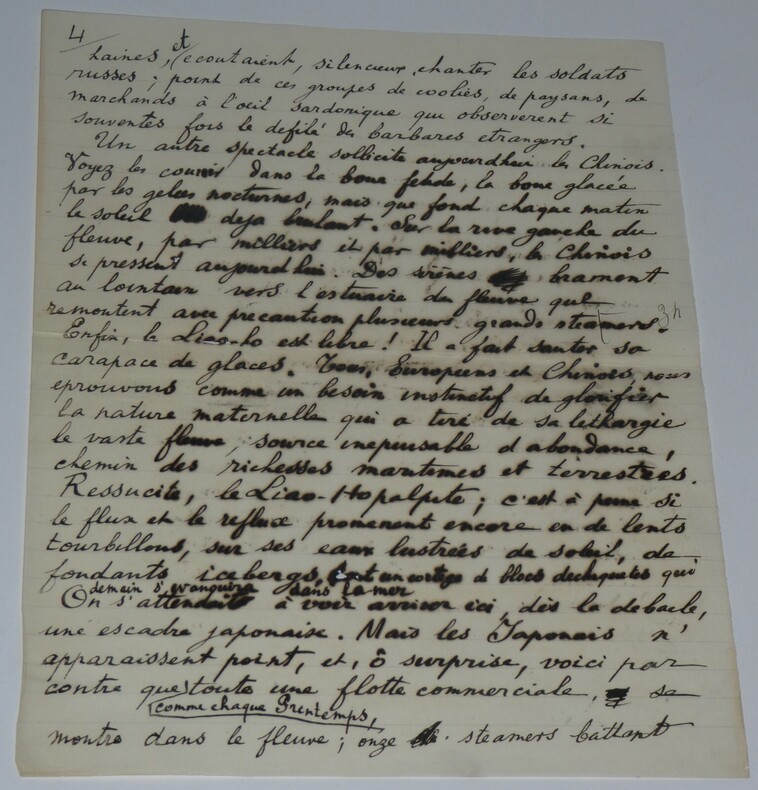 4
haines, et ecoutaient, silencieux, chanter les soldats
russes ; point de ces groupes de coolies, de paysans, de
marchands à l'oeil sardonique qui observerent si
souventes fois le defilé des barbares etrangers.
Un autre spectacle sollicite aujourdhui les Chinois.
Voyez les courir dans la boue fetide, la boue glacée
par les gelees nocturnes, mais que fond chaque matin
le soleil deja brulant. Sur la rive gauche du
fleuve, par milliers et par milliers, les Chinois
se pressent aujourdhui. Des sirènes brament
au lointain vers l'estuaire du fleuve que
remontent avec precaution plusieurs grands steamers.
3h
Enfin, le Liao-ho est libre ! Il a fait sauter sa
carapace de glaces. Tous, Européens et Chinois, nous
eprouvons comme un besoin instinctif de glorifier
la nature maternelle qui a tiré de sa lethargie
le vaste fleuve, source inepuisable d'abondance,
chemin des richesses maritimes et terrestres.
Ressucité, le Liao-Ho palpite ; c'est à peine si
le flux et le reflux promenent encore en de lents
tourbillons, sur ses eaux lustrées de soleil, de
fondants icebergs, un cortège de blocs dechiquetés qui
demain s'evanouira dans la mer
On s'attendait à voir arriver ici, dès la debacle,
une escadre japonaise. Mais les Japonais n'
apparaissent point, et, ô surprise, voici par
contre que toute une flotte commerciale, se
comme chaque Printemps,
montre dans le fleuve ; onze steamers battant